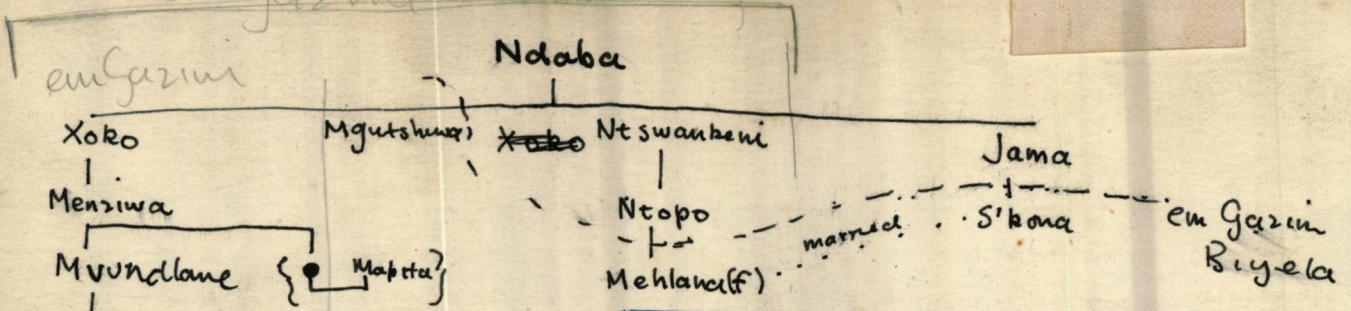 emGazini
Ndaba
Xoko Mgutshwa) Xoko Ntswankeni
Jama
Menziwa
Ntopo
S'kona
em Gazini
married
Biyela
Mvundlane { Mapita? }
Mehlana(f)